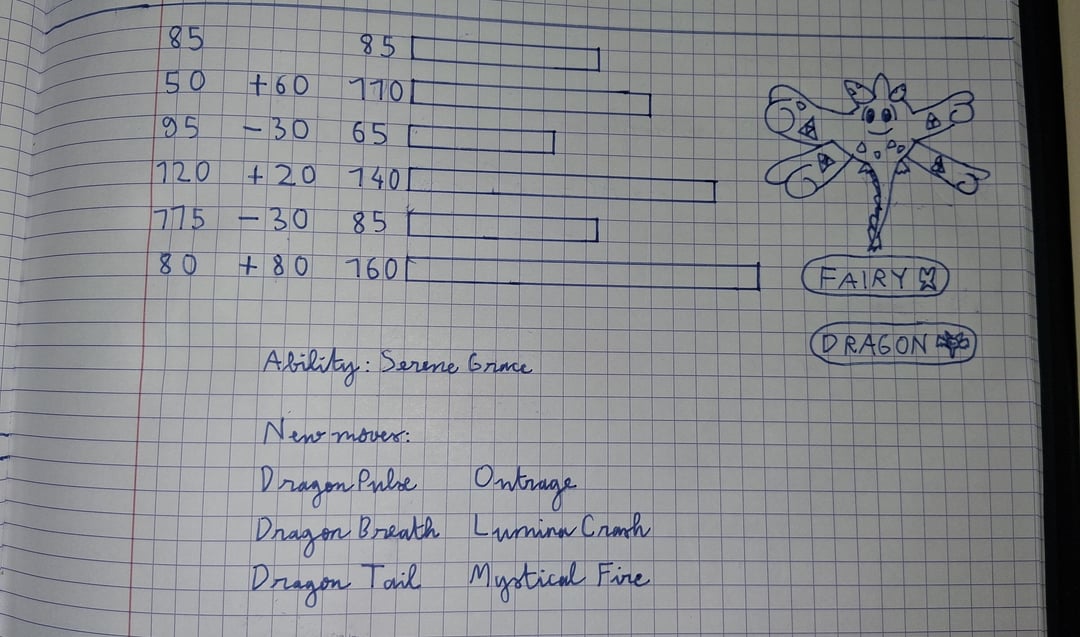 85 85
50 +60 110
95 -30 65
120 +20 140
115 -30 85
80 +80 160
FAIRY
DRAGON
Ability: Serene Grace
New moves:
Dragon Pulse Outrage
Dragon Breath Lumina Crash
Dragon Tail Mystical Fire